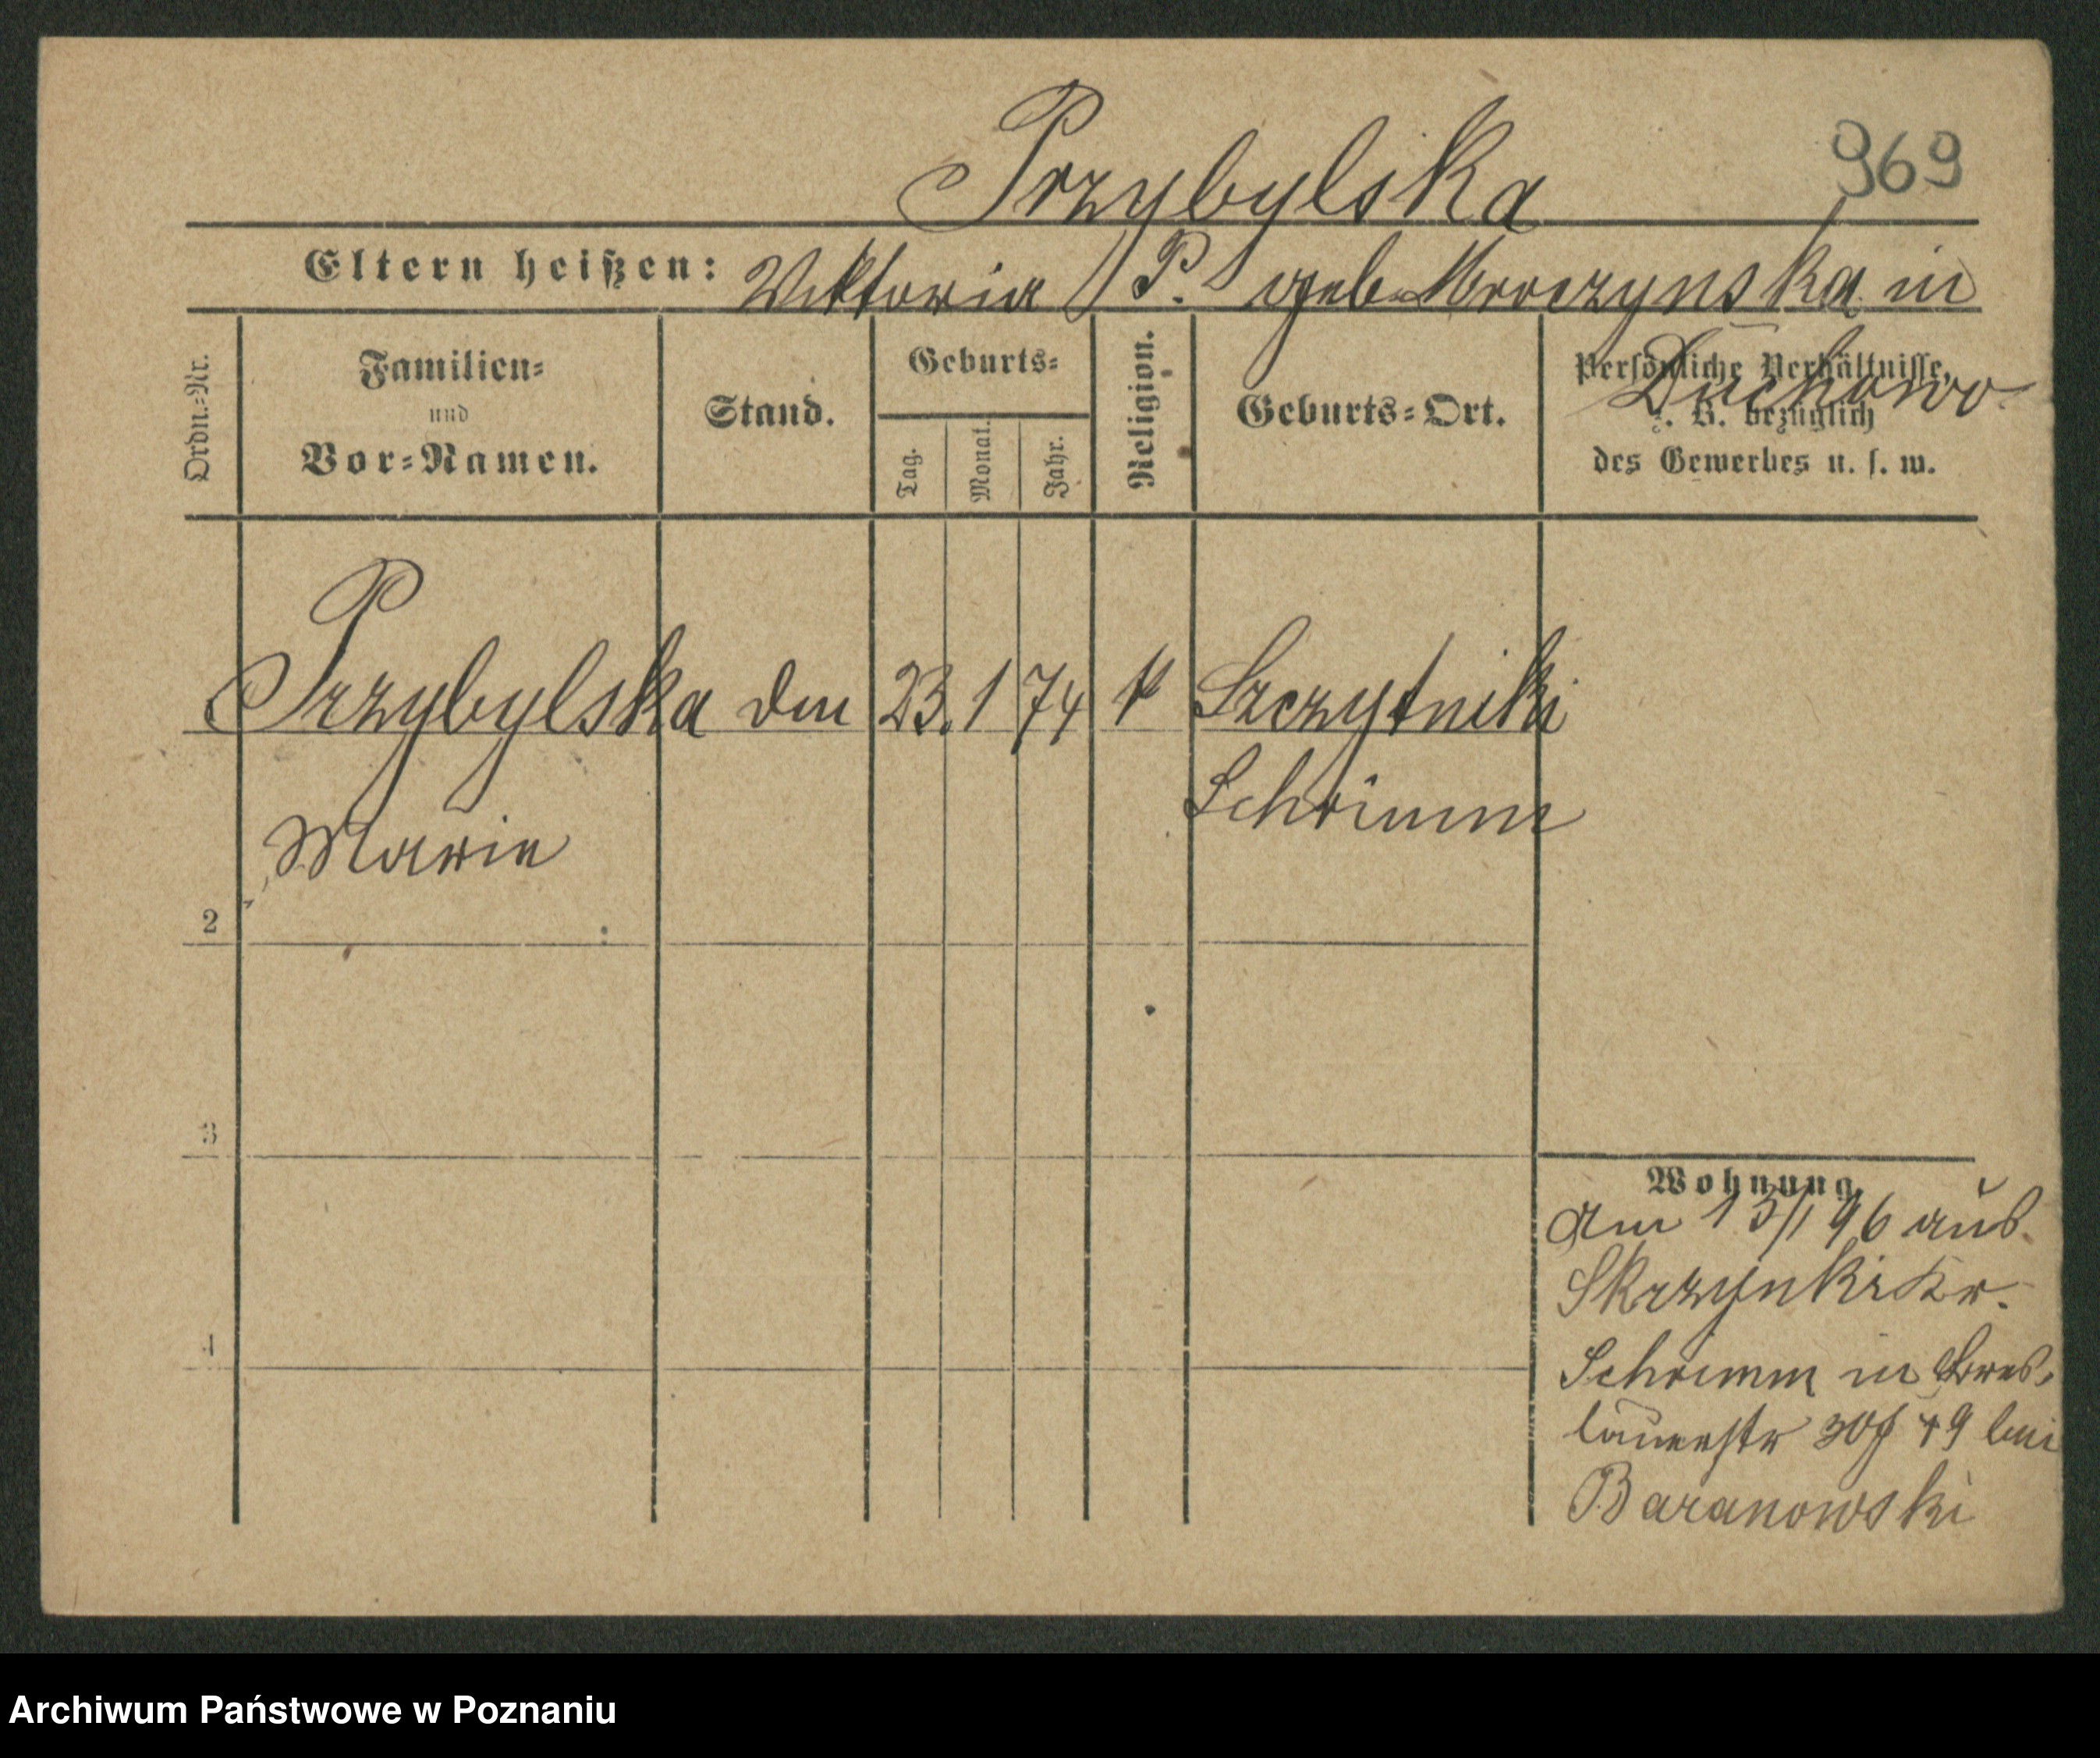 Przybylska
969
Eltern heißen: Viktoria P. geb. Mroczynska in
Duchowo
Ordn.-Nr.
Familien-
und
Vor-Namen.
Stand.
Geburts-
Tag.
Monat.
Jahr.
Religion.
Geburts-Ort.
Persönliche Verhältnisse,
z. B. bezüglich
des Gewerbes u. s. w.
Przybylska 23. 1 74 k Szczytniki
Schrimm
Marie
2
3
4
Wohnung.
Am 13/1 96 aus
Skrzynki Kr.
Schrimm in Bres-
lauerstr 19 bei
Baranowski
Archiwum Państwowe w Poznaniu